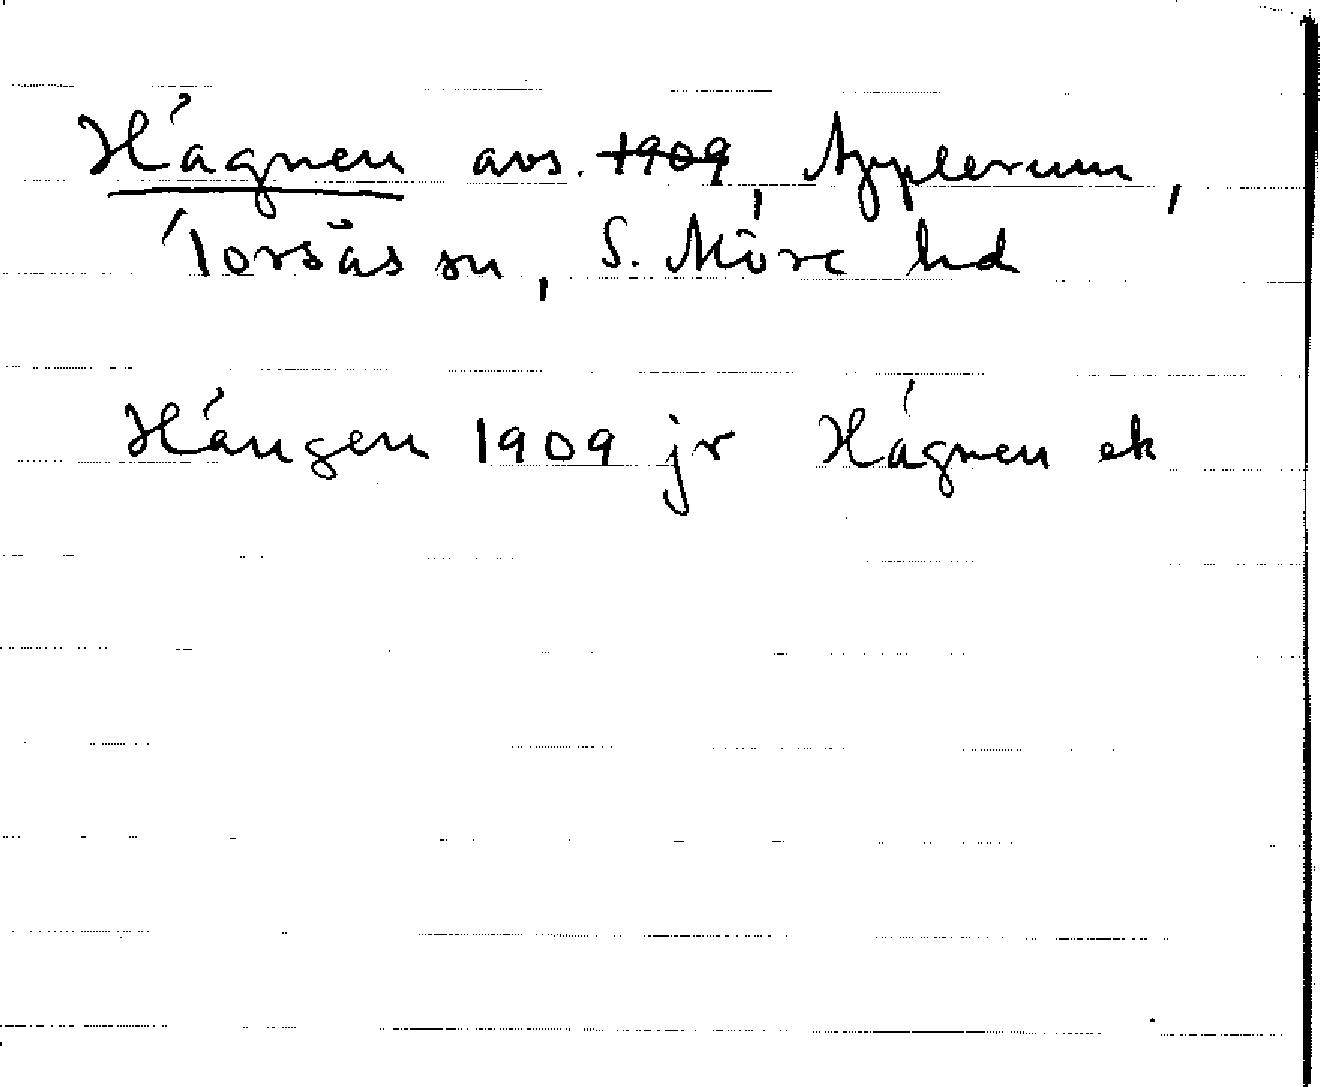 Hagnen avs. 1909, Applerum,
Torsås sn, S. Möre hd
Hangen 1909 jr Hagnen ek